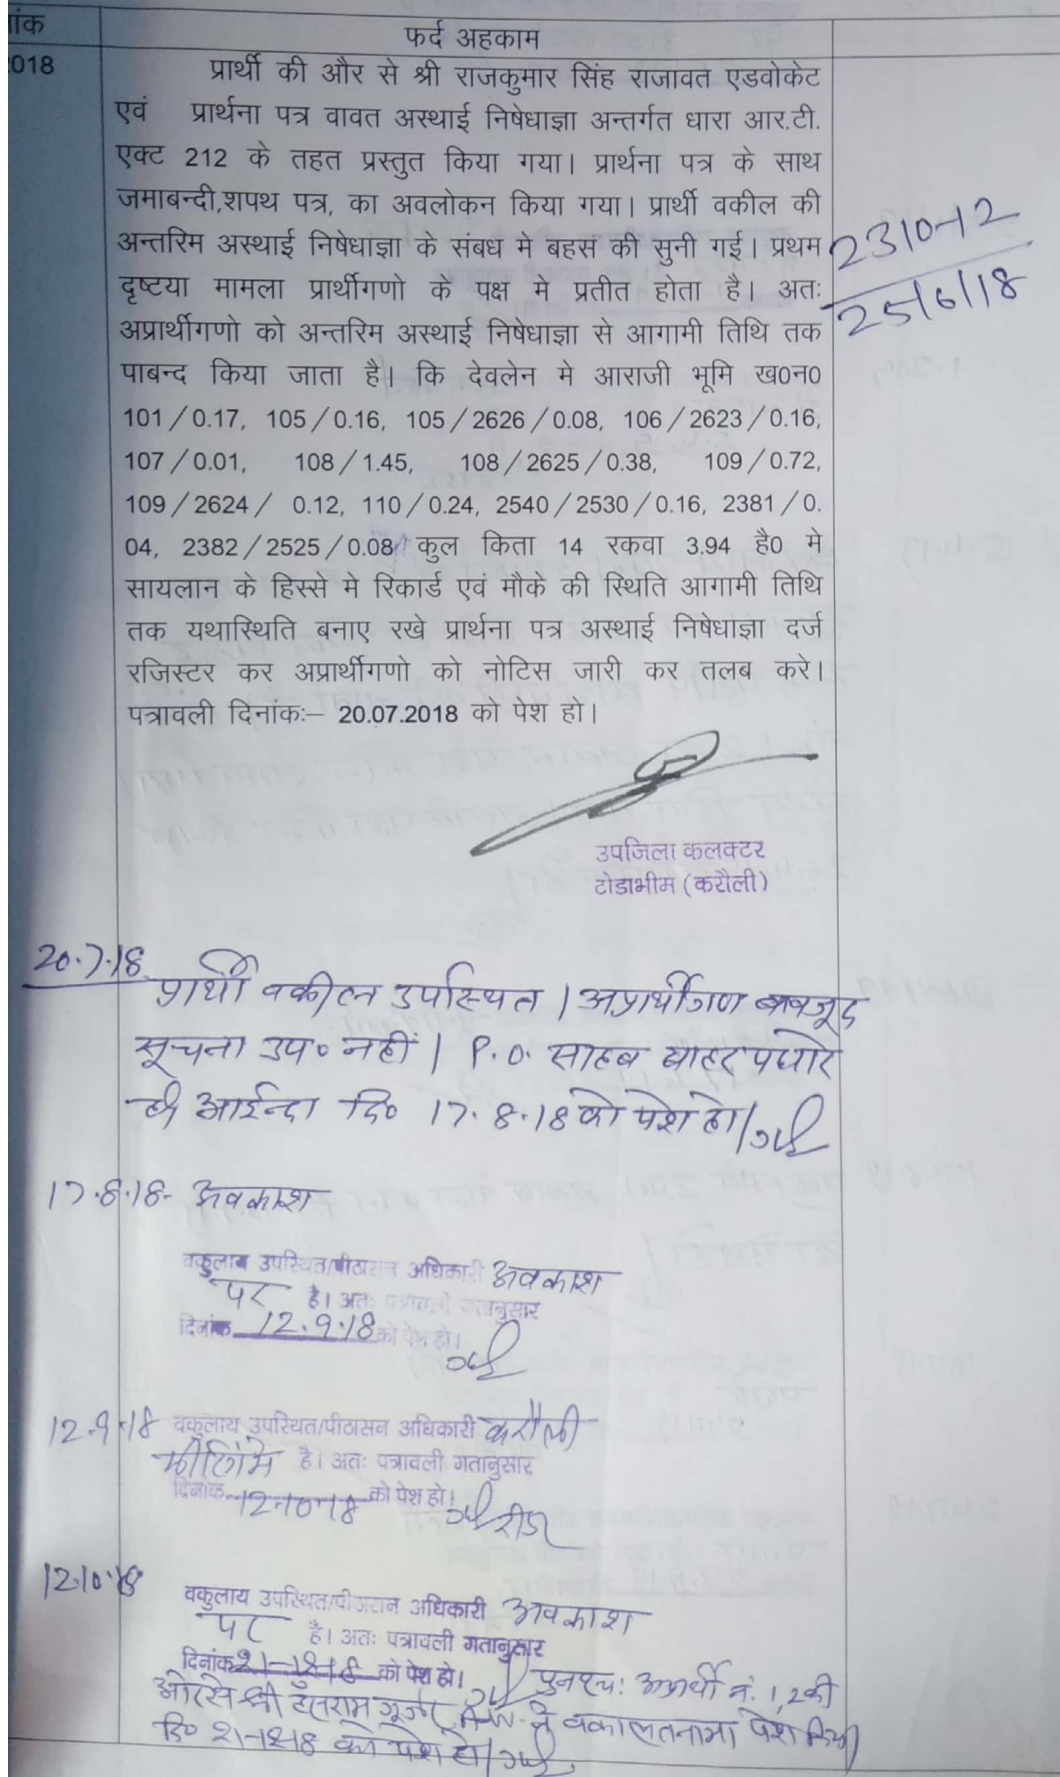 ांक
फर्द अहकाम
2018
प्रार्थी की और से श्री राजकुमार सिंह राजावत एडवोकेट
एवं प्रार्थना पत्र वावत अस्थाई निषेधाज्ञा अन्तर्गत धारा आर.टी.
एक्ट 212 के तहत प्रस्तुत किया गया। प्रार्थना पत्र के साथ
जमाबन्दी,शपथ पत्र, का अवलोकन किया गया। प्रार्थी वकील की
अन्तरिम अस्थाई निषेधाज्ञा के संबध मे बहस की सुनी गई। प्रथम
दृष्टया मामला प्रार्थीगणो के पक्ष मे प्रतीत होता है। अतः
अप्रार्थीगणो को अन्तरिम अस्थाई निषेधाज्ञा से आगामी तिथि तक
पाबन्द किया जाता है। कि देवलेन मे आराजी भूमि ख0न0
101/0.17, 105/0.16, 105/2626/0.08, 106/2623/0.16,
107/0.01, 108/1.45, 108/2625/0.38, 109/0.72,
109/2624/ 0.12, 110/0.24, 2540/2530/0.16, 2381/0.
04, 2382/2525/0.08 कुल किता 14 रकवा 3.94 है0 मे
सायलान के हिस्से मे रिकार्ड एवं मौके की स्थिति आगामी तिथि
तक यथास्थिति बनाए रखे प्रार्थना पत्र अस्थाई निषेधाज्ञा दर्ज
रजिस्टर कर अप्रार्थीगणो को नोटिस जारी कर तलब करे।
पत्रावली दिनांकः– 20.07.2018 को पेश हो।
2310-12
25/6/18
उपजिला कलक्टर
टोडाभीम (करौली)
20.7.18
प्रार्थी वकील उपस्थित । अप्रार्थीगण बावजूद
सूचना उप० नहीं । P.O. साहब बाहर पधारे
है आईन्दा दि० 17.8.18 को पेश हो।
17.8.18- अवकाश
वकुलाय उपस्थित/पीठासन अधिकारी अवकाश
पर है। अतः पत्रावली गतानुसार
दिनांक 12.9.18 को पेश हो।
12.9.18 वकुलाय उपस्थित/पीठासन अधिकारी करौली
मीटिंग में है। अतः पत्रावली गतानुसार
दिनांक 12-10-18 को पेश हो।
रीडर
12.10.18
वकुलाय उपस्थित/पीठासन अधिकारी अवकाश
पर है। अतः पत्रावली गतानुसार
दिनांक 21-12-18 को पेश हो। पुनश्चः अप्रार्थी नं. 1,2 की
ओर से श्री गूर्जर ने वकालतनामा पेश किया
दि० 21-12-18 को पेश हो।